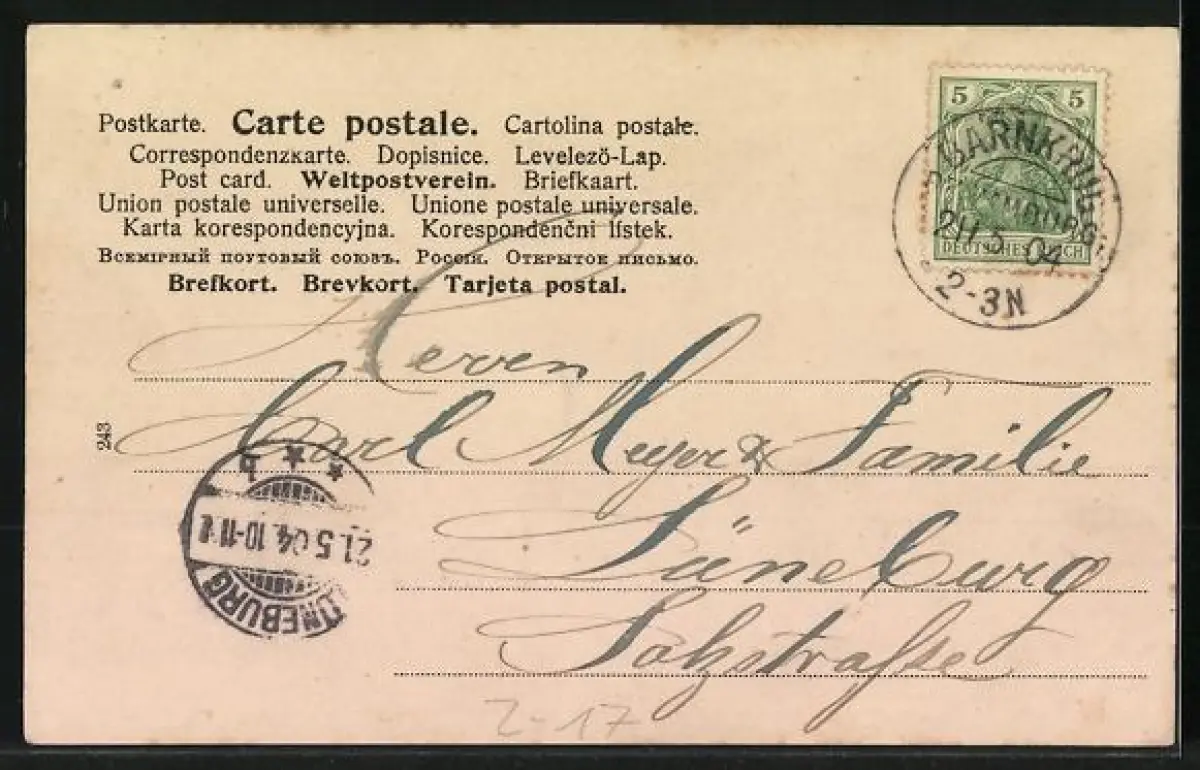 Postkarte. Carte postale. Cartolina postale.
Correspondenzkarte. Dopisnice. Levelező-Lap.
Post card. Weltpostverein. Briefkaart.
Union postale universelle. Unione postale universale.
Karta korespondencyjna. Korespondenčni listek.
Всемірный почтовый союзъ. Россія. Открытое письмо.
Brefkort. Brevkort. Tarjeta postal.
5 5
DEUTSCHES REICH
BARNKRUG
21.5.04
2-3N
Herren
Karl Meyer & Familie
Lüneburg
Salzstraße
243
b
21.5.04.10-11V
LÜNEBURG
Z-17